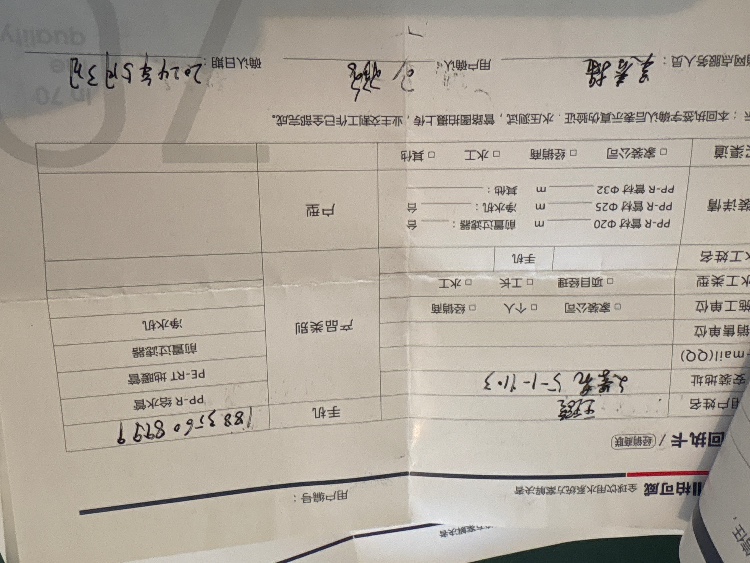 柏可威 全球饮用水系统方案解决者
用户编号：
回执卡 / 经销商联
用户姓名 手机 188 3560 8999
安装地址 5-1-1103 产品类别 PP-R 给水管
E-mail(QQ) PE-RT 地暖管
销售单位 前置过滤器
施工单位 □ 家装公司 □ 个人 □ 经销商 净水机
水工类型 □ 项目经理 □ 工长 □ 水工
水工姓名 手机
安装详情 PP-R 管材 Φ20 m 前置过滤器： 台 户型
PP-R 管材 Φ25 m 净水机： 台
PP-R 管材 Φ32 m 其他：
渠道 □ 家装公司 □ 经销商 □ 水工 □ 其他
本回执签字确认后表示真伪验证，水压测试，管路图拍摄上传，业主交割工作已全部完成。
网点服务人员： 用户确认： 确认日期： 2024年5月3日
in 70
quality